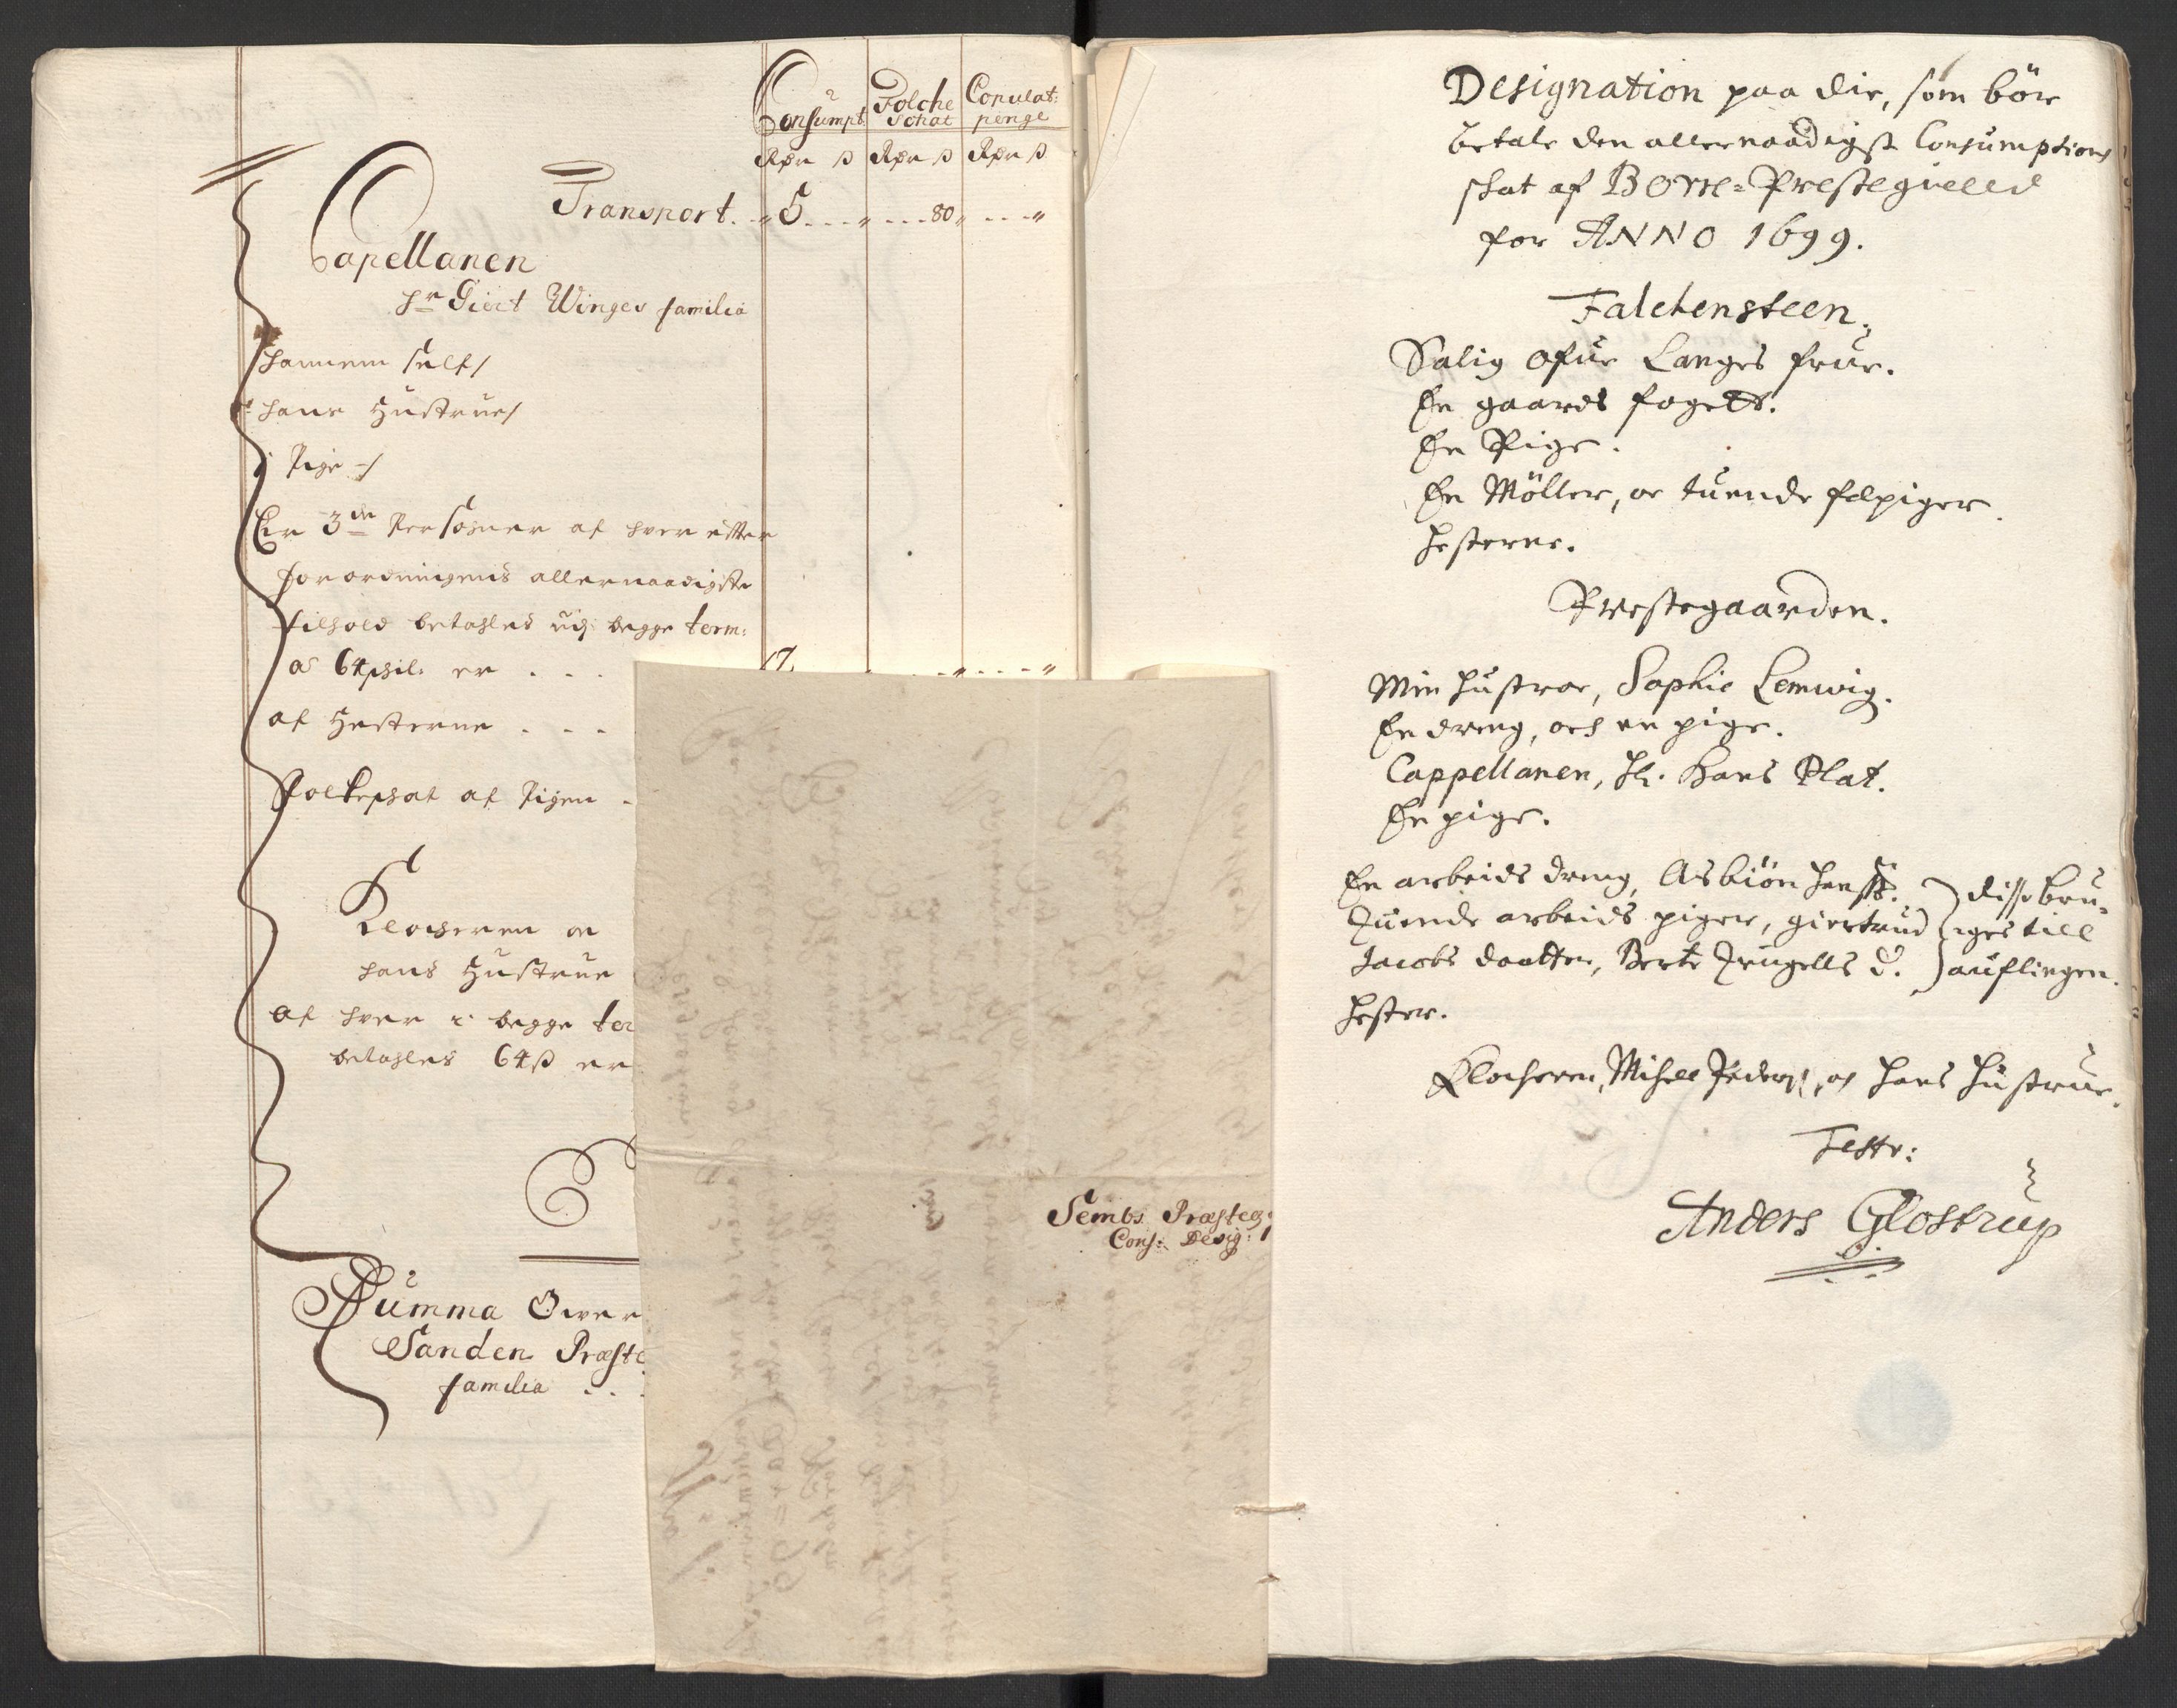 Consumpt. Folche Schat Copulat: penge
Rdr ß Rdr ß Rdr ß
Transport. .. 5 ... " ... 80 " ... "
Capellanen
hr Giert Winges familia
hannem self/
hans Hustrue/
1 Pige -/
Er 3de Personer af hver efter
forordningens allernaadigste
tilhold betahles udj begge term:
a 64 skil: er . . .
af Hesterne . . .
Folkeschat af Pigen -
Klocheren oc
hans Hustrue
af hver i begge ter
betahles 64 ß er
Summa Over
Sanden Præste
familia . . .
Sembs Præsteg:
Cons: Desig: 1
Designation paa die, som bör
betale den allernaadigst Consumptions
skat af Borre-Prestegield
for ANNO 1699.
Falckensteen.
Salig Ofue Langes frue.
En gaards fogett.
En Pige.
En Möller, oc tuende fæpiger.
Hesterne.
Prestegaarden.
Min hustroe, Sophie Lemwig.
En dreng, och en pige.
Cappellanen, Hr. Hans Plat.
En pige.
En arbeids dreng, Asbiön Hanss. } disse bru-
Tuende arbeids piger, giertrud } ges till
Jacobs daatter, Berte Trugells d. } auflingen.
Hester.
Klocheren, Mihell Peders., oc hans hustrue.
Teste:
Anders Glostrup